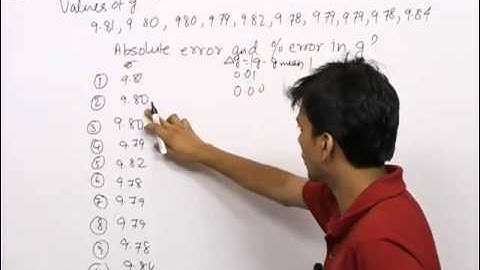 Values of g
9.81, 9.80, 980, 979, 9.82, 9.78, 9.79, 979, 978, 9.84
Absolute error and % error in g?
Δg=|g-gmean|
① 9.81 0.01
② 9.80 0.00
③ 9.80
④ 9.79
⑤ 9.82
⑥ 9.78
⑦ 9.79
⑧ 9.79
⑨ 9.78
9.84